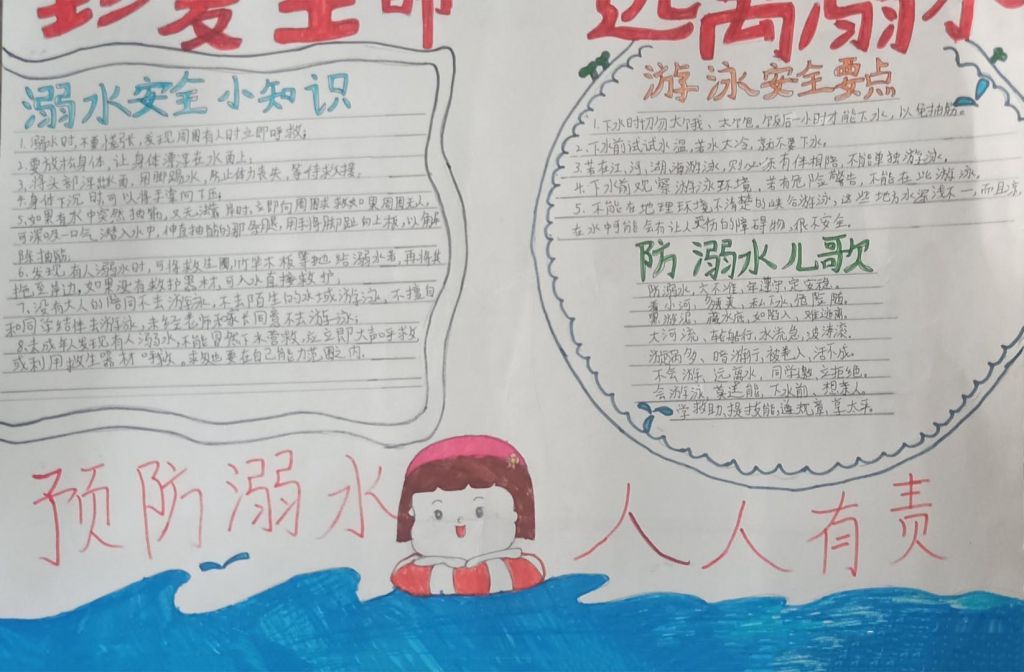 珍爱生命 远离溺水
溺水安全小知识
1.溺水时,不要慌张,发现周围有人时立即呼救;
2.要放松身体,让身体漂浮在水面上;
3.将头部浮出水面,用脚踢水,防止体力丧失,等待救援;
4.身体下沉时,可以将手掌向下压;
5.如果在水中突然抽筋,又无法靠岸时,立即向周围求救如果周围无人,
可深吸一口气潜入水中,伸直抽筋的那条腿,用手将脚趾向上扳,以解
除抽筋;
6.发现有人溺水时,可将救生圈,竹竿木板等抛给溺水者,再将其
拖至岸边,如果没有救护器材,可入水直接救护;
7.没有大人的陪同不去游泳,不去陌生的水域游泳,不擅自
和同学结伴去游泳,未经老师和家长同意不去游泳;
8.未成年人发现有人溺水,不能冒然下水营救,应立即大声呼救
或利用救生器材呼救。求救也要在自己能力范围之内.
游泳安全要点
1.下水时切勿太饿、太饱,饭后一小时才能下水,以免抽筋。
2.下水前试试水温,若水太冷,就不要下水。
3.若在江、河、湖、海游泳,则必须有伴相陪,不能单独游泳。
4.下水前观察游泳环境,若有危险警告,不能在此游泳。
5.不能在地理环境不清楚的峡谷游泳,这些地方水深浅不一,而且凉,
在水中可能会有让人受伤的障碍物,很不安全。
防溺水儿歌
防溺水,大不准,牢遵守,定安稳。
大河流、转转行,水流急,波涛滚。
不会游、远离水,同学邀,立拒绝。
会游泳,莫逞能,下水前,想亲人。
学救助,提技能,
预防溺水 人人有责